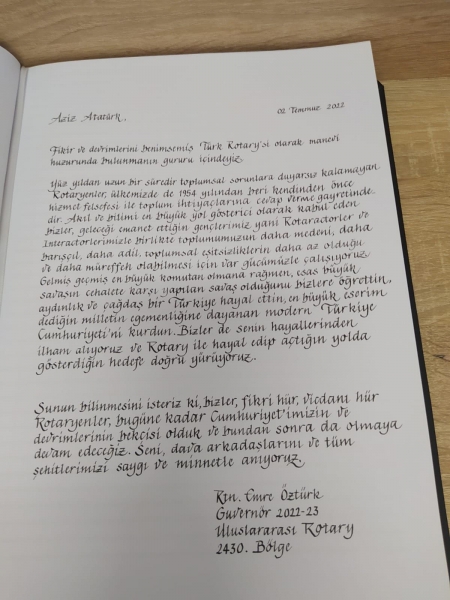 Aziz Atatürk,
02 Temmuz 2022
Fikir ve devrimlerini benimsemiş Türk Rotary'si olarak manevi
huzurunda bulunmanın gururu içindeyiz.
Yüz yıldan uzun bir süredir toplumsal sorunlara duyarsız kalamayan
Rotaryenler, ülkemizde de 1954 yılından beri kendinden önce
hizmet felsefesi ile toplum ihtiyaçlarına cevap verme gayretinde-
dir. Akıl ve bilimi en büyük yol gösterici olarak kabul eden
bizler, geleceği emanet ettiğin gençlerimiz yani Rotaractorler ve
Interactorlerimizle birlikte toplumumuzun daha medeni, daha
barışçıl, daha adil, toplumsal eşitsizliklerin daha az olduğu
ve daha müreffeh olabilmesi için var gücümüzle çalışıyoruz.
Gelmiş geçmiş en büyük komutan olmana rağmen, esas büyük
savaşın cehalete karşı yapılan savaş olduğunu bizlere öğrettin,
aydınlık ve çağdaş bir Türkiye hayal ettin, en büyük eserim
dediğin milletin egemenliğine dayanan modern Türkiye
Cumhuriyeti'ni kurdun. Bizler de senin hayallerinden
ilham alıyoruz ve Rotary ile hayal edip açtığın yolda
gösterdiğin hedefe doğru yürüyoruz.
Şunun bilinmesini isteriz ki, bizler, fikri hür, vicdanı hür
Rotaryenler, bugüne kadar Cumhuriyet'imizin ve
devrimlerinin bekçisi olduk ve bundan sonra da olmaya
devam edeceğiz. Seni, dava arkadaşlarını ve tüm
şehitlerimizi saygı ve minnetle anıyoruz.
Rtn. Emre Öztürk
Guvernör 2022-23
Uluslararası Rotary
2430. Bölge